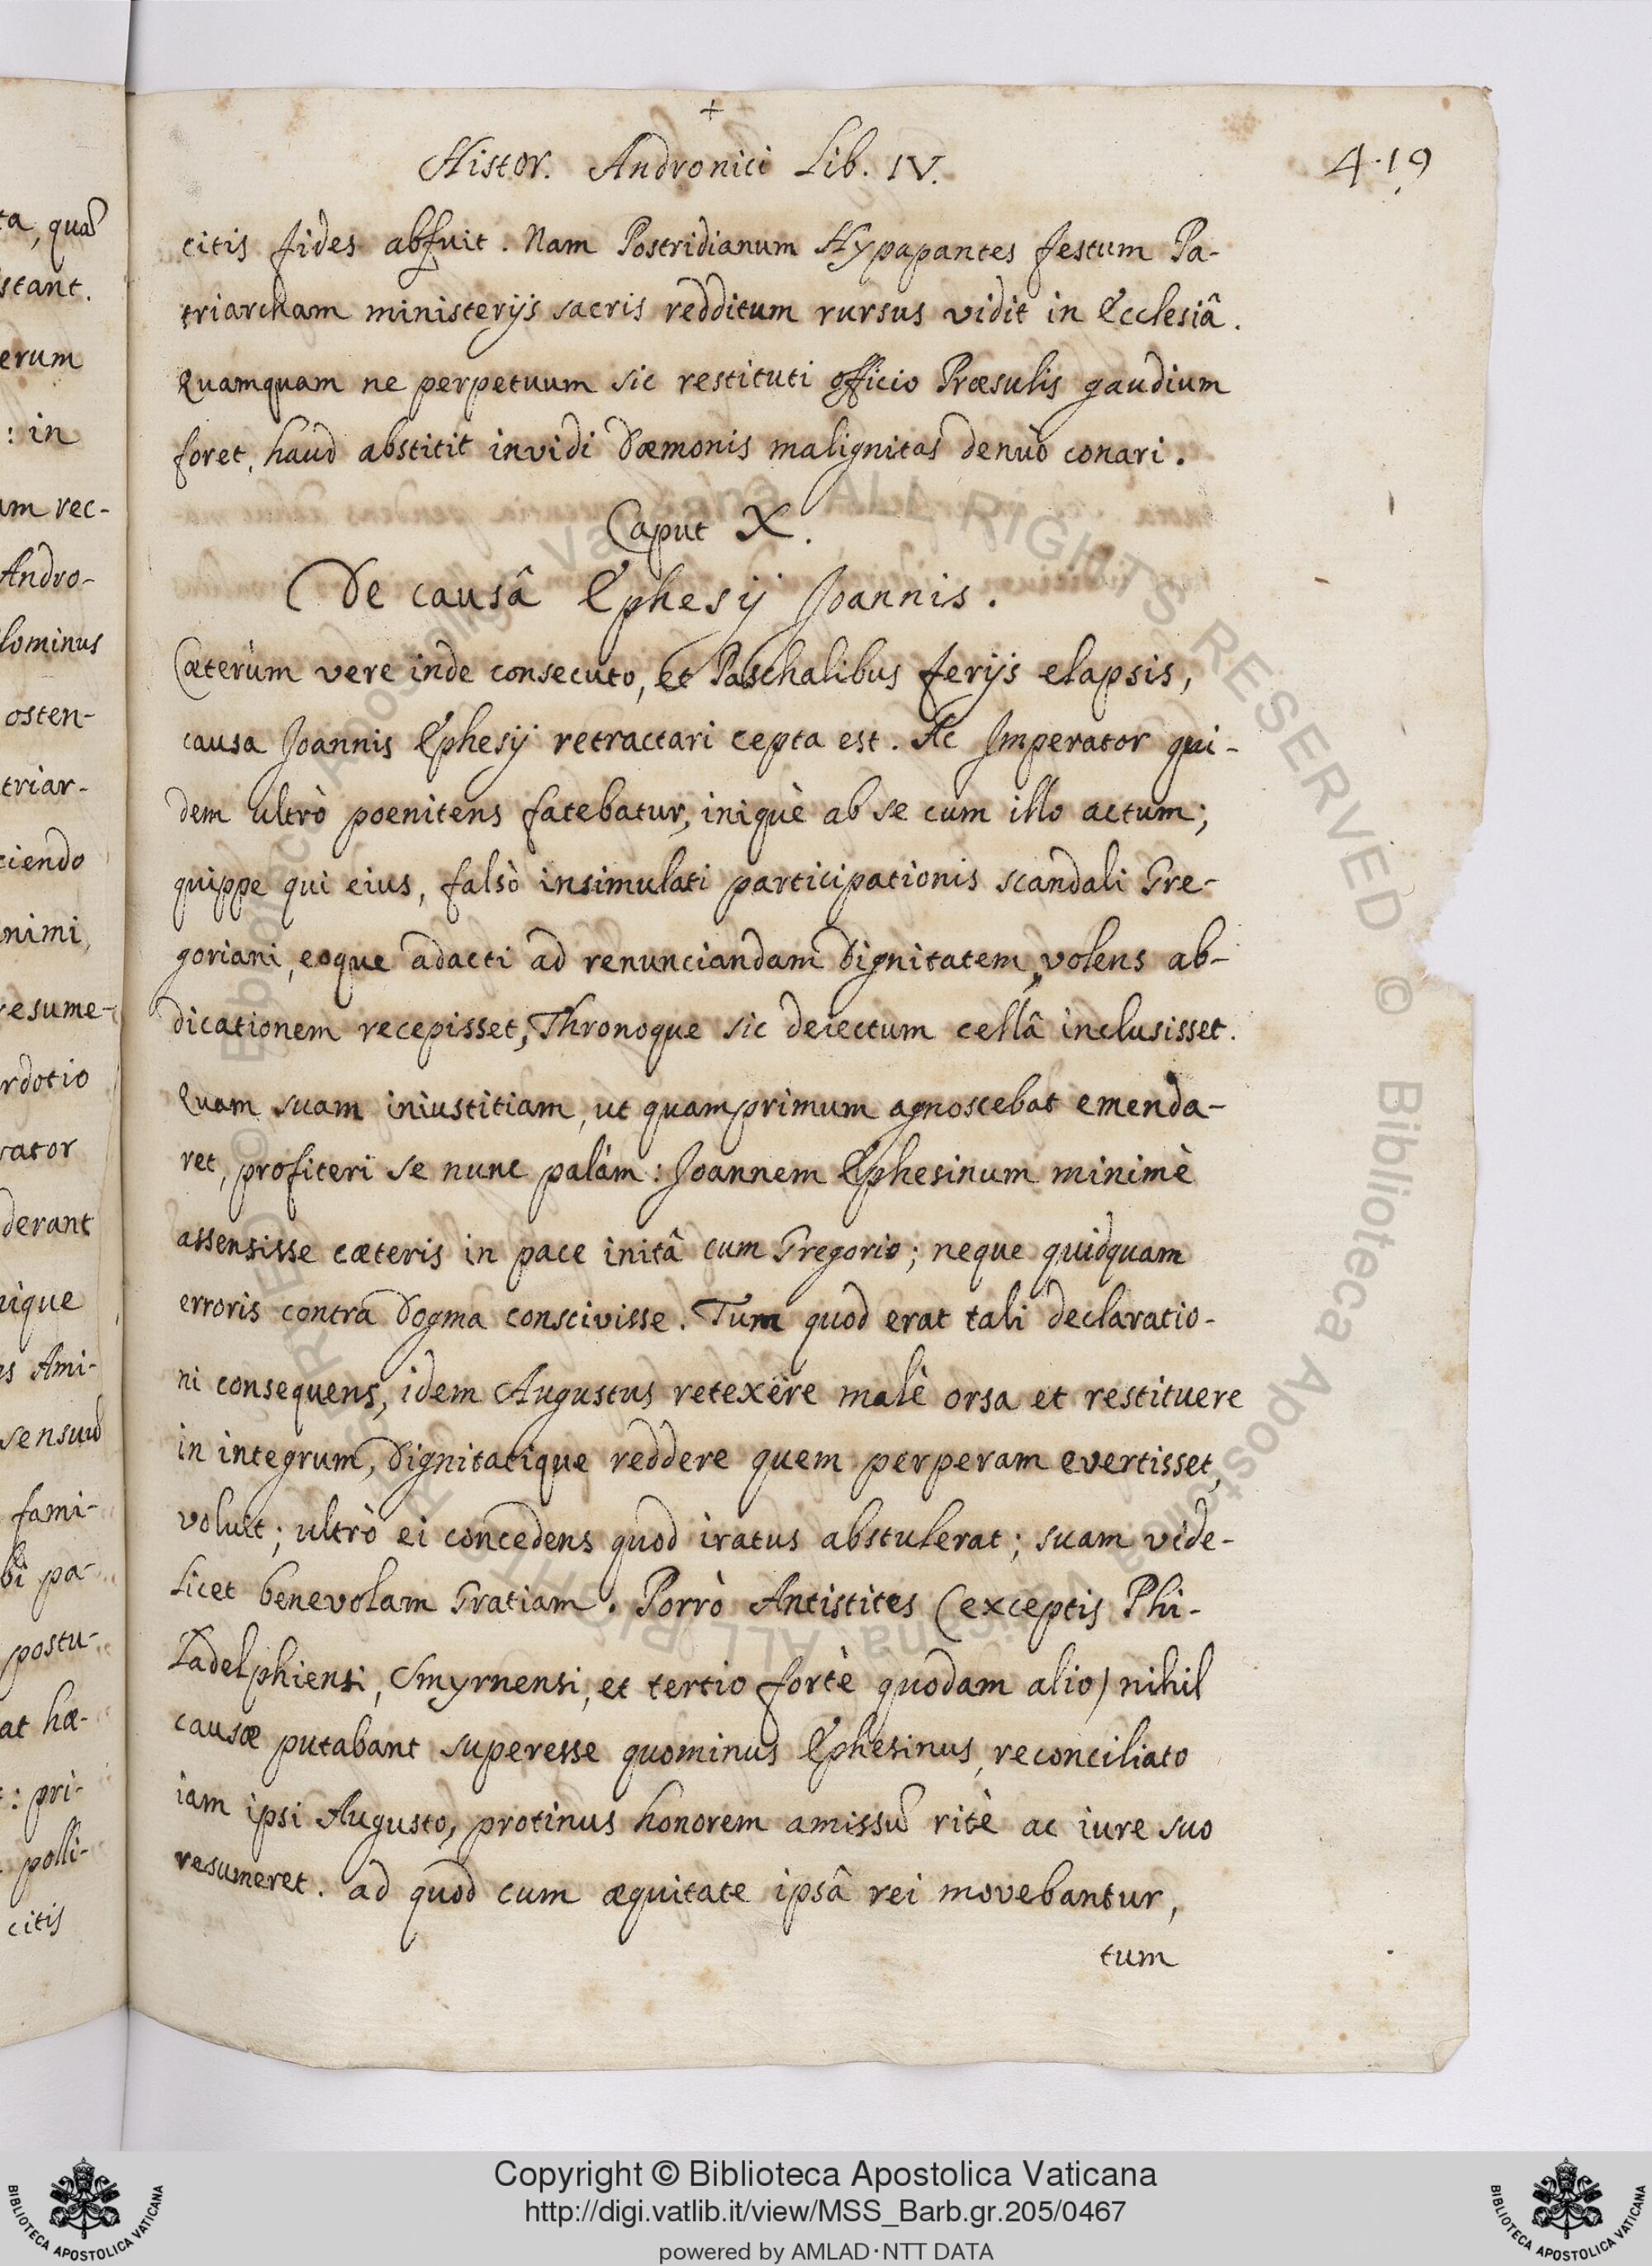 +
Histor. Andronici Lib. IV.
4.19
citis fides abfuit. Nam Postridianum Hypapantes festum Pa-
triarcham ministerijs sacris redditum rursus vidit in Ecclesiâ.
Quamquam ne perpetuum sic restituti officio Præsulis gaudium
foret, haud abstitit invidi Dæmonis malignitas denuò conari.
Caput X.
De causâ Ephesij Joannis.
Cæterùm vere inde consecuto, et Paschalibus ferijs elapsis,
causa Joannis Ephesij retractari cepta est. Ac Imperator qui-
dem ultrò poenitens fatebatur, iniquè ab se cum illo actum;
quippe qui eius, falsò insimulati participationis scandali Gre-
goriani, eoque adacti ad renunciandam Dignitatem, volens ab-
dicationem recepisset, Thronoque sic deiectum cellâ inclusisset.
Quam suam iniustitiam, ut quamprimum agnoscebat emenda-
ret, profiteri se nunc palàm: Joannem Ephesinum minimè
assensisse cæteris in pace initâ cum Gregorio; neque quidquam
erroris contra Dogma conscivisse. Tum quod erat tali declaratio-
ni consequens, idem Augustus retexere malè orsa et restituere
in integrum, Dignitatique reddere quem perperam evertisset,
voluit; ultrò ei concedens quod iratus abstulerat; suam vide-
licet benevolam Gratiam. Porrò Antistites (exceptis Phi-
ladelphiensi, Smyrnensi, et tertio fortè quodam alio) nihil
causæ putabant superesse quominus Ephesinus, reconciliato
iam ipsi Augusto, protinus honorem amissũ ritè ac iure suo
resumeret. ad quod cum æquitate ipsâ rei movebantur,
tum
ta, quã
stant.
erum
: in
um rec-
Andro-
lominus
osten-
triar-
ciendo
nimi,
resume-
rdotio
rator
derant
nique
s Ami-
sensuũ
fami-
bi pa-
postu-
at hæ-
: pri-
polli-
citis
© Biblioteca Apostolica Vaticana ALL RIGHTS RESERVED © Biblioteca Apostolica Vaticana ALL RIGHTS RESERVED
Copyright © Biblioteca Apostolica Vaticana
http://digi.vatlib.it/view/MSS_Barb.gr.205/0467
powered by AMLAD·NTT DATA
BIBLIOTECA APOSTOLICA VATICANA
BIBLIOTECA APOSTOLICA VATICANA